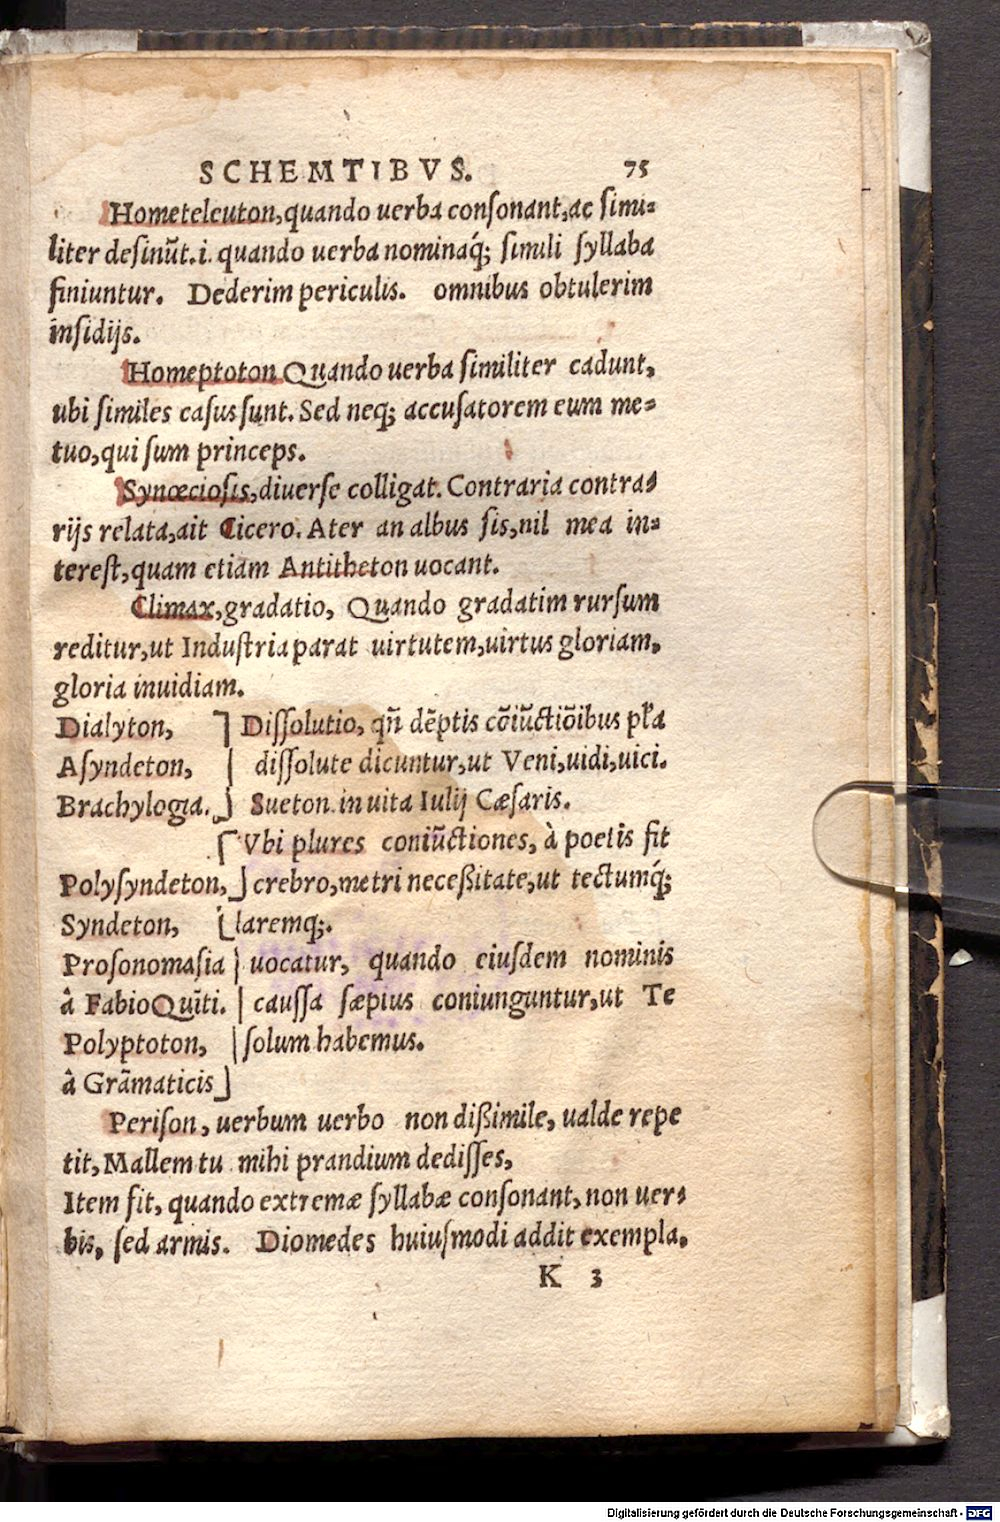 SCHEMTIBVS. 75
Hometeleuton,quando uerba conſonant,ac ſimi⸗
liter deſinūt.i. quando uerba nominaq́; ſimili ſyllaba
finiuntur. Dederim periculis. omnibus obtulerim
inſidijs.
Homeptoton Quando uerba ſimiliter cadunt,
ubi ſimiles caſus ſunt. Sed neq; accuſatorem eum me⸗
tuo,qui ſum princeps.
Synœcioſis,diuerſe colligat. Contraria contra⸗
rijs relata,ait Cicero. Ater an albus ſis,nil mea in⸗
tereſt,quam etiam Antitheton uocant.
Climax,gradatio, Quando gradatim rurſum
reditur,ut Induſtria parat uirtutem,uirtus gloriam,
gloria inuidiam.
Dialyton, Diſſolutio, qñ dẽptis cõiũctiõibus pła
Aſyndeton, diſſolute dicuntur,ut Veni,uidi,uici.
Brachylogia. Sueton. in uita Iulij Cæſaris.
Vbi plures coniũctiones, à poetis fit
Polyſyndeton, crebro,metri neceßitate,ut tectumq́;
Syndeton, laremq;.
Proſonomaſia uocatur, quando eiuſdem nominis
â Fabio Quīti. cauſſa ſæpius coniunguntur,ut Te
Polyptoton, ſolum habemus.
â Grãmaticis
Periſon, uerbum uerbo non dißimile, ualde repe
tit,Mallem tu mihi prandium dediſſes,
Item fit, quando extremæ ſyllabæ conſonant, non uer⸗
bis, ſed armis. Diomedes huiuſmodi addit exempla,
K 3
Digitalisierung gefördert durch die Deutsche Forschungsgemeinschaft - DFG